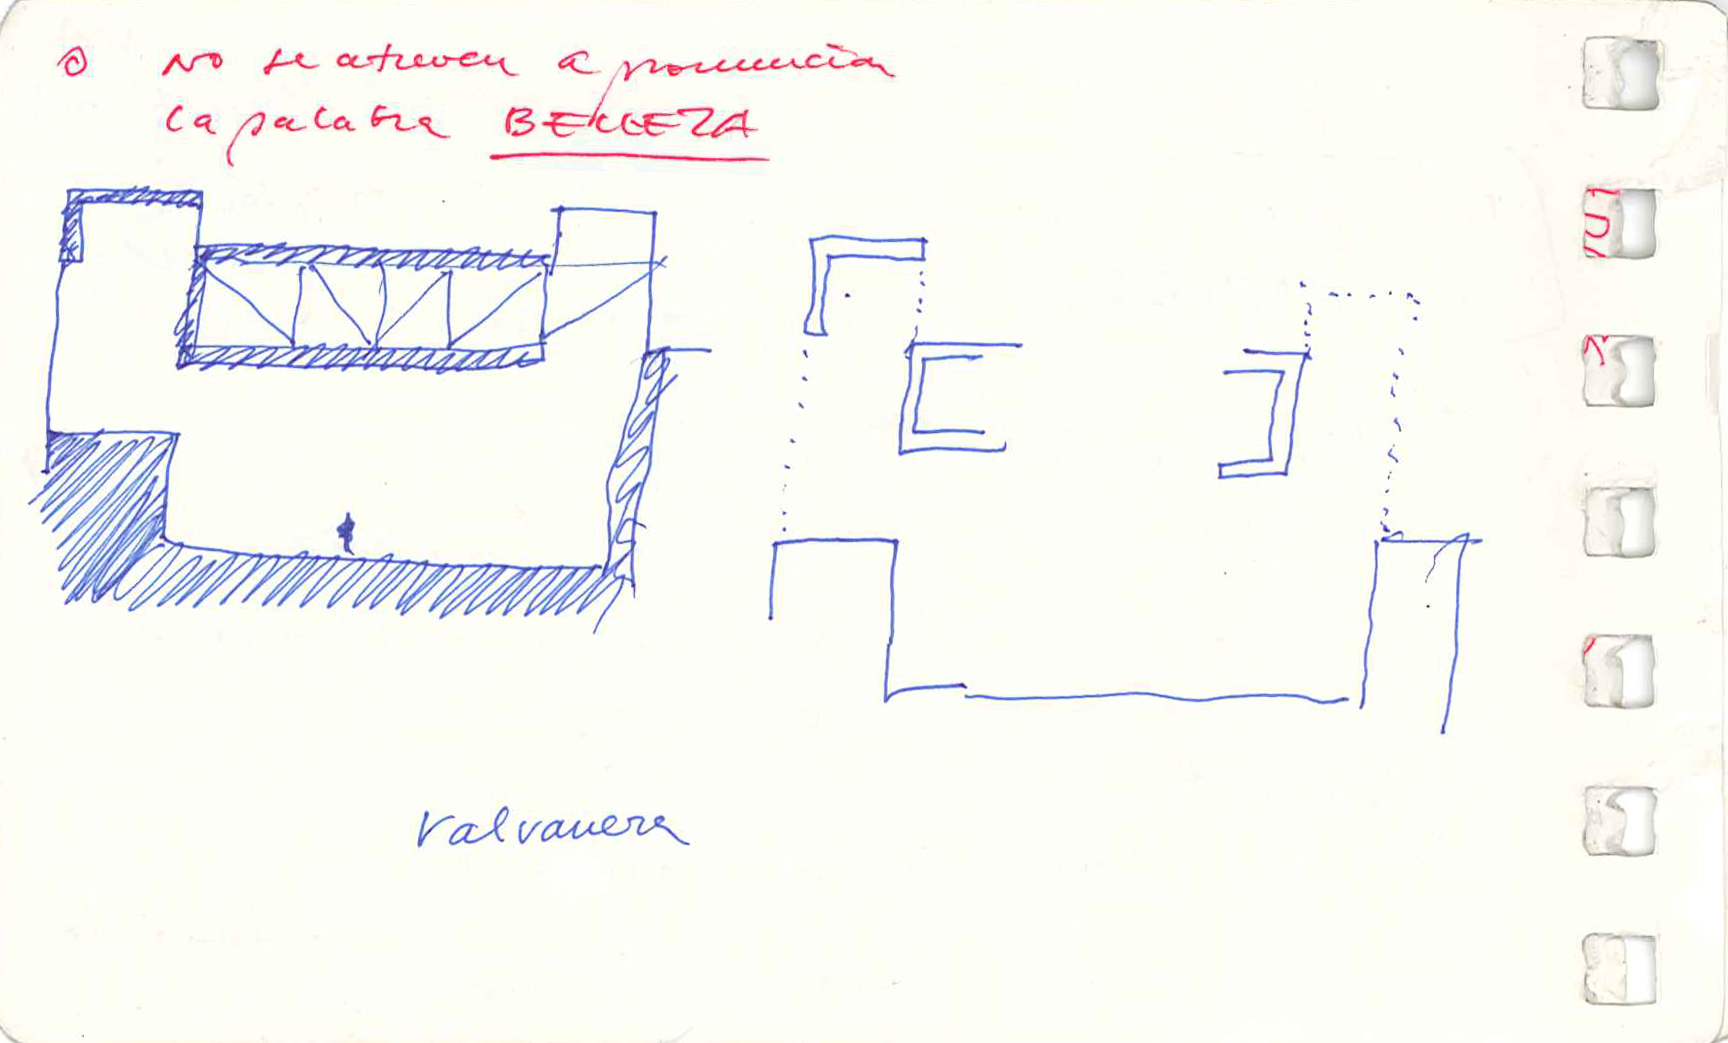 No se atreven a pronunciar
la palabra BELLEZA
Valvanera